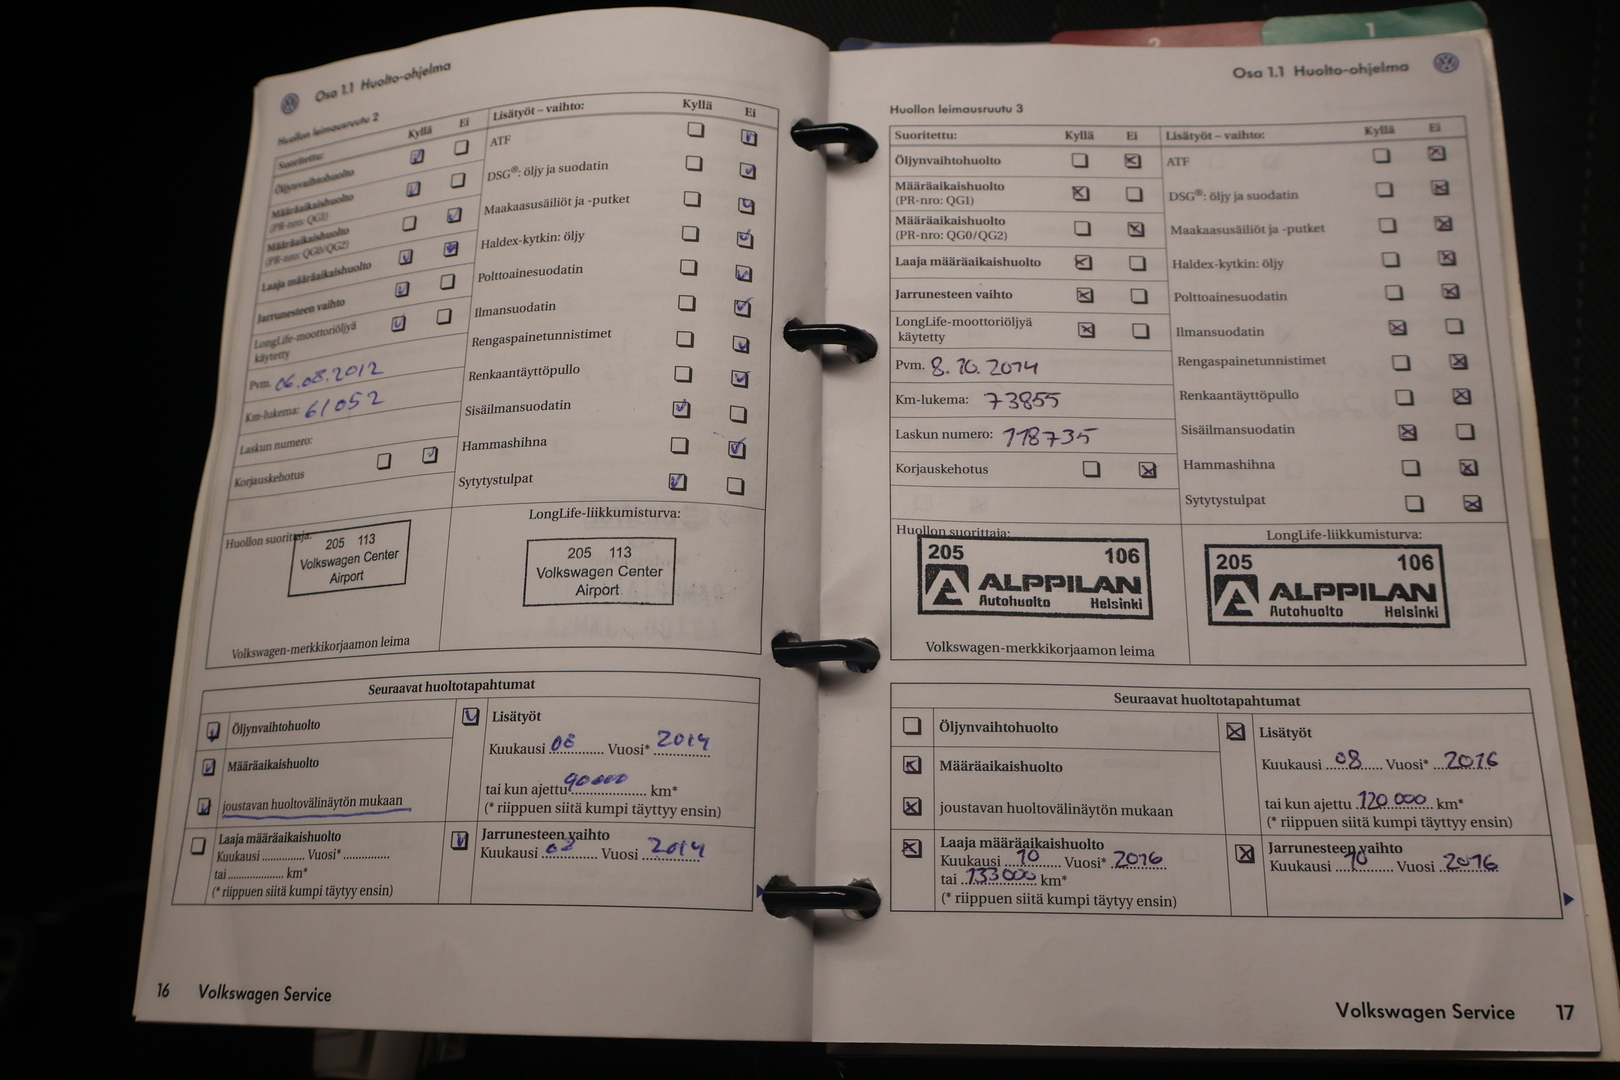 Osa 1.1 Huolto-ohjelma
Huollon leimausruutu 2
Suoritettu: Kyllä Ei
Öljynvaihtohuolto
Määräaikaishuolto
(PR-nro: QG1)
Määräaikaishuolto
(PR-nro: QG0/QG2)
Laaja määräaikaishuolto
Jarrunesteen vaihto
LongLife-moottoriöljyä
käytetty
Pvm. 06.08.2012
Km-lukema: 61052
Laskun numero:
Korjauskehotus
Lisätyöt – vaihto: Kyllä Ei
ATF
DSG®: öljy ja suodatin
Maakaasusäiliöt ja -putket
Haldex-kytkin: öljy
Polttoainesuodatin
Ilmansuodatin
Rengaspainetunnistimet
Renkaantäyttöpullo
Sisäilmansuodatin
Hammashihna
Sytytystulpat
Huollon suorittaja:
205 113
Volkswagen Center
Airport
Volkswagen-merkkikorjaamon leima
LongLife-liikkumisturva:
205 113
Volkswagen Center
Airport
Seuraavat huoltotapahtumat
Öljynvaihtohuolto
Määräaikaishuolto
joustavan huoltovälinäytön mukaan
Laaja määräaikaishuolto
Kuukausi .............. Vuosi* ..............
tai .................... km*
(* riippuen siitä kumpi täytyy ensin)
Lisätyöt
Kuukausi 08 Vuosi* 2014
tai kun ajettu 90000 km*
(* riippuen siitä kumpi täyttyy ensin)
Jarrunesteen vaihto
Kuukausi 08 Vuosi 2014
16 Volkswagen Service
2
1
Osa 1.1 Huolto-ohjelma
Huollon leimausruutu 3
Suoritettu: Kyllä Ei
Öljynvaihtohuolto
Määräaikaishuolto
(PR-nro: QG1)
Määräaikaishuolto
(PR-nro: QG0/QG2)
Laaja määräaikaishuolto
Jarrunesteen vaihto
LongLife-moottoriöljyä
käytetty
Pvm. 8.10.2014
Km-lukema: 73855
Laskun numero: 118735
Korjauskehotus
Lisätyöt – vaihto: Kyllä Ei
ATF
DSG®: öljy ja suodatin
Maakaasusäiliöt ja -putket
Haldex-kytkin: öljy
Polttoainesuodatin
Ilmansuodatin
Rengaspainetunnistimet
Renkaantäyttöpullo
Sisäilmansuodatin
Hammashihna
Sytytystulpat
Huollon suorittaja:
205 106
ALPPILAN
Autohuolto Helsinki
Volkswagen-merkkikorjaamon leima
LongLife-liikkumisturva:
205 106
ALPPILAN
Autohuolto Helsinki
Seuraavat huoltotapahtumat
Öljynvaihtohuolto
Määräaikaishuolto
joustavan huoltovälinäytön mukaan
Laaja määräaikaishuolto
Kuukausi 10 Vuosi* 2016
tai 133000 km*
(* riippuen siitä kumpi täytyy ensin)
Lisätyöt
Kuukausi 08 Vuosi* 2016
tai kun ajettu 120 000 km*
(* riippuen siitä kumpi täyttyy ensin)
Jarrunesteen vaihto
Kuukausi 10 Vuosi 2016
Volkswagen Service 17